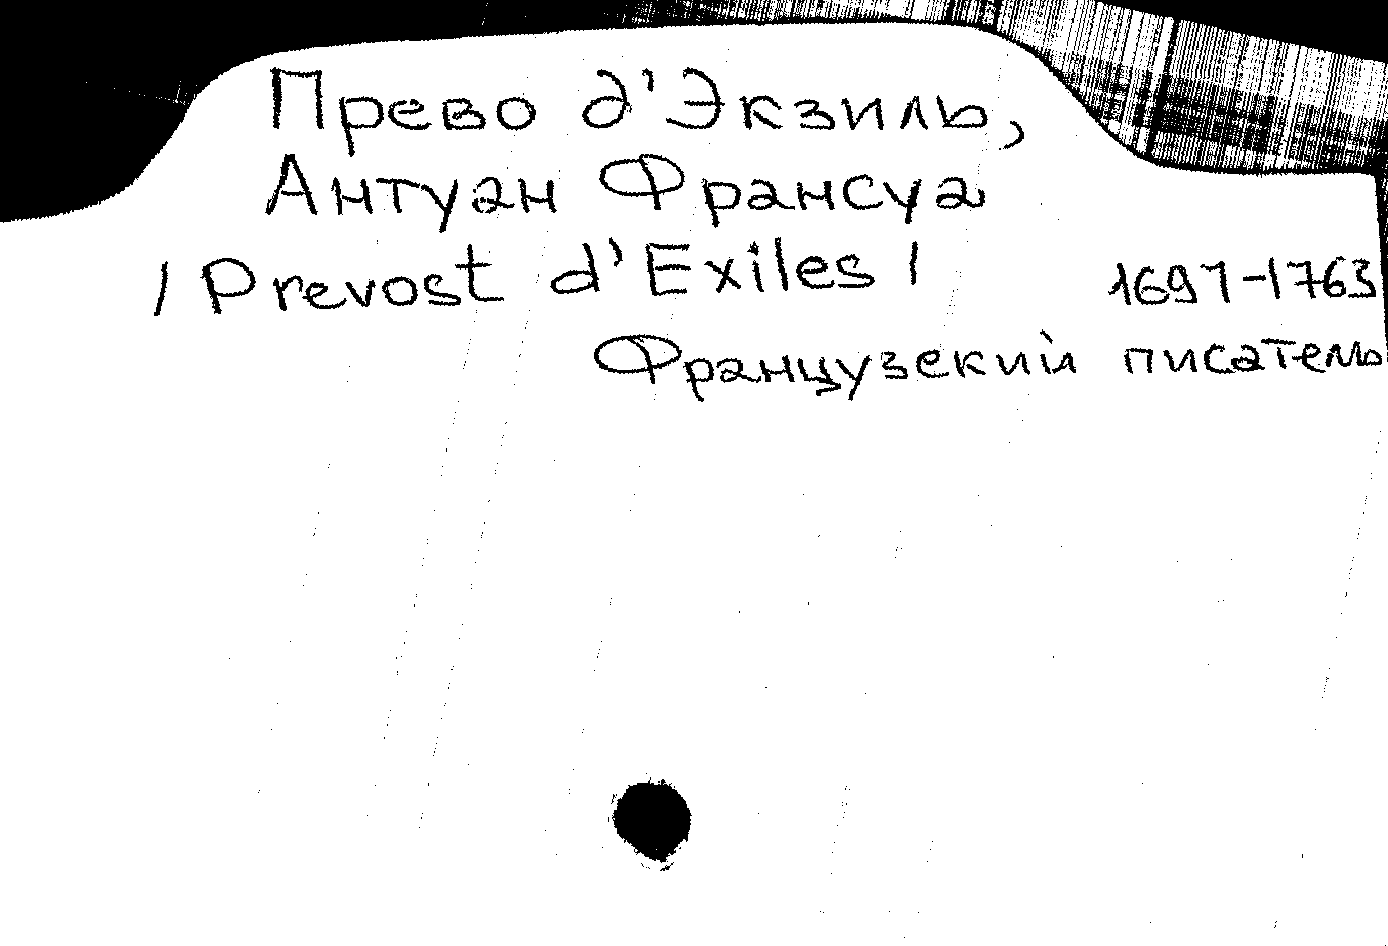 Прево д'Экзиль,
Антуан Франсуа
/ Prevost d'Exiles / 1697-1763
Французекий писатель